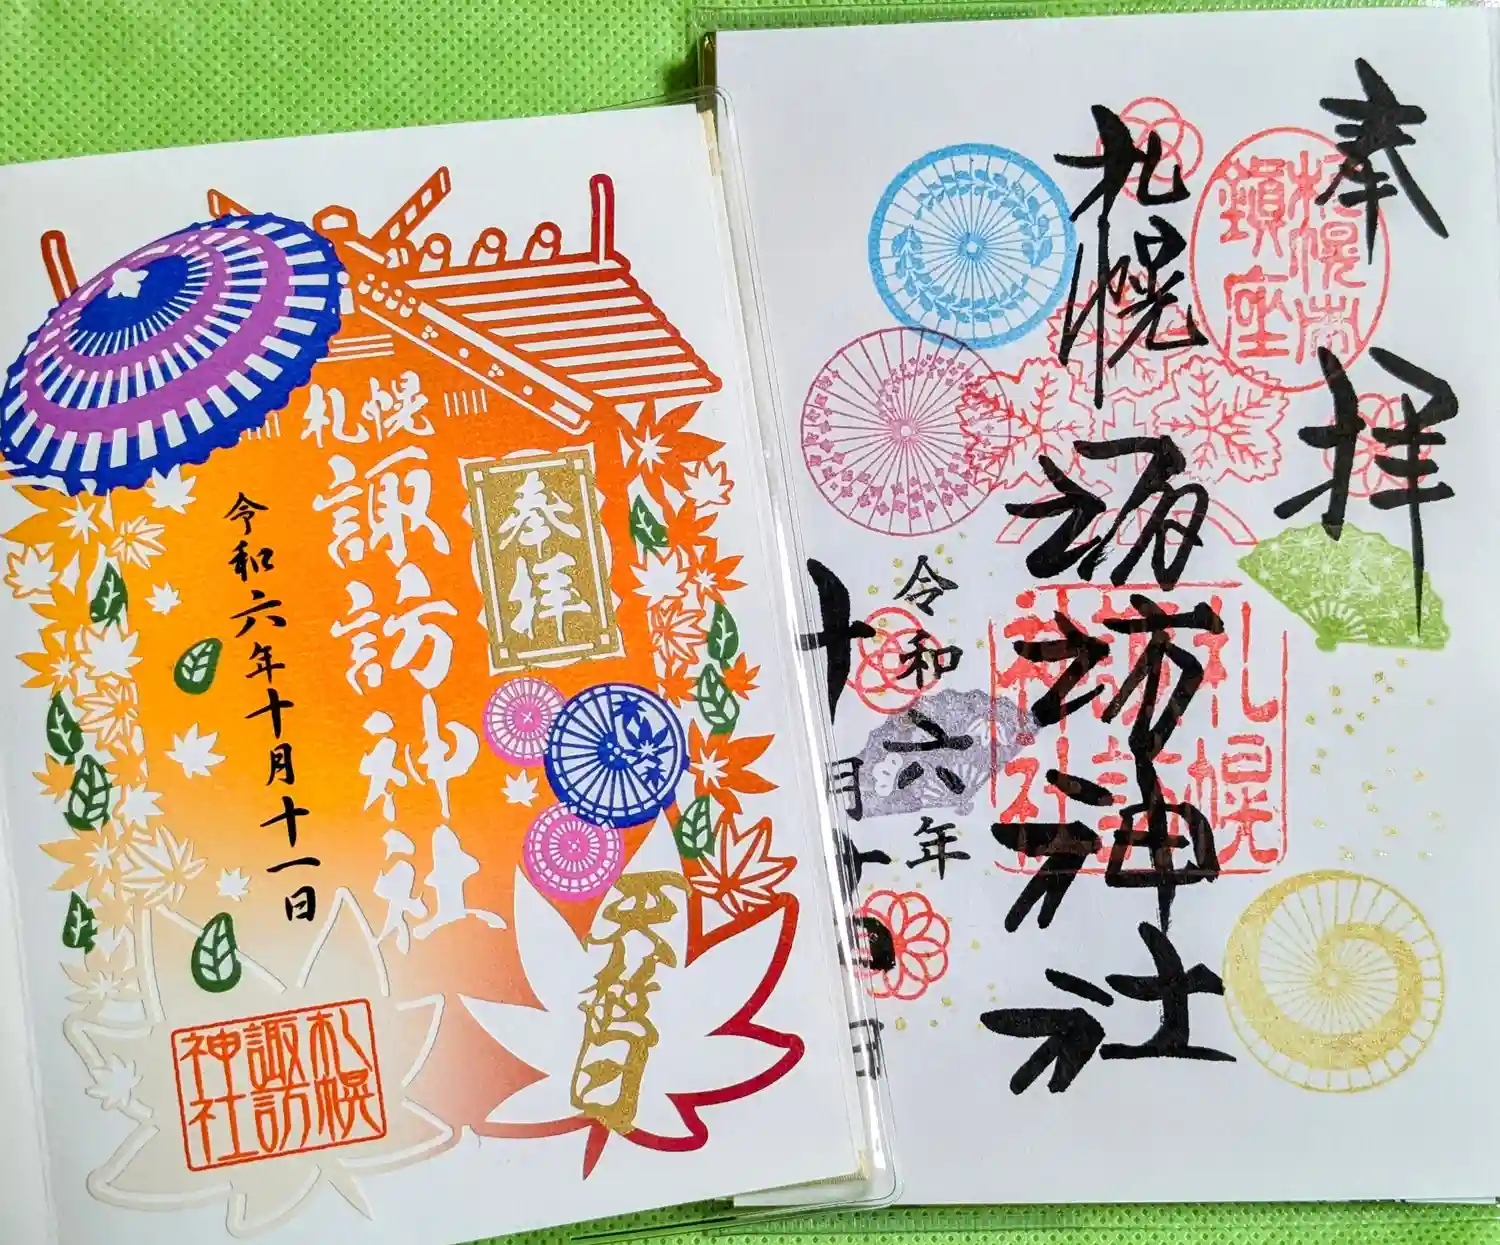 奉拝
札幌
諏訪神社
令和六年十月十一日
天赦日
札幌
諏訪
神社
奉拝
札幌市
鎮座
札幌
諏訪神社
札幌
諏訪
神社
令和六年
十月十一日